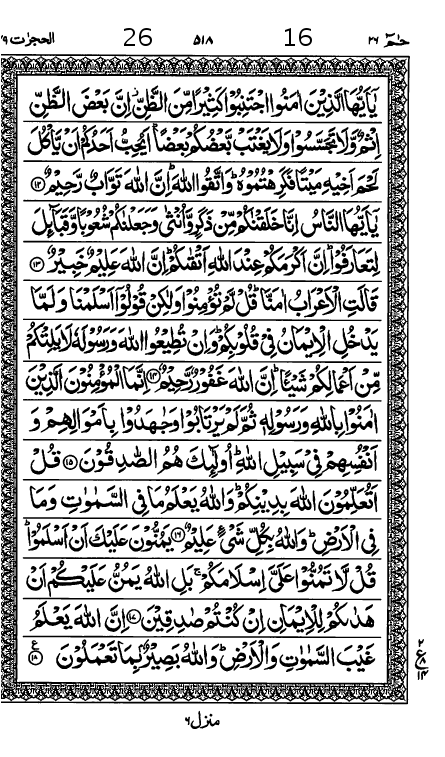 حٰمٓ ٢٦ 16 ٥١٨ 26 الحجرات ٤٩
يٰۤاَيُّهَا الَّذِيْنَ اٰمَنُوا اجْتَنِبُوْا كَثِيْرًا مِّنَ الظَّنِّ اِنَّ بَعْضَ الظَّنِّ
اِثْمٌ وَّلَا تَجَسَّسُوْا وَلَا يَغْتَبْ بَّعْضُكُمْ بَعْضًا ؕ اَيُحِبُّ اَحَدُكُمْ اَنْ يَّاْكُلَ
لَحْمَ اَخِيْهِ مَيْتًا فَكَرِهْتُمُوْهُ ؕ وَاتَّقُوا اللّٰهَ ؕ اِنَّ اللّٰهَ تَوَّابٌ رَّحِيْمٌ ﴿۱۲﴾
يٰۤاَيُّهَا النَّاسُ اِنَّا خَلَقْنٰكُمْ مِّنْ ذَكَرٍ وَّاُنْثٰى وَجَعَلْنٰكُمْ شُعُوْبًا وَّقَبَآئِلَ
لِتَعَارَفُوْا ؕ اِنَّ اَكْرَمَكُمْ عِنْدَ اللّٰهِ اَتْقٰىكُمْ ؕ اِنَّ اللّٰهَ عَلِيْمٌ خَبِيْرٌ ﴿۱۳﴾
قَالَتِ الْاَعْرَابُ اٰمَنَّا ؕ قُلْ لَّمْ تُؤْمِنُوْا وَلٰكِنْ قُوْلُوْۤا اَسْلَمْنَا وَلَمَّا
يَدْخُلِ الْاِيْمَانُ فِيْ قُلُوْبِكُمْ ؕ وَاِنْ تُطِيْعُوا اللّٰهَ وَرَسُوْلَهٗ لَا يَلِتْكُمْ
مِّنْ اَعْمَالِكُمْ شَيْـًٔا ؕ اِنَّ اللّٰهَ غَفُوْرٌ رَّحِيْمٌ ﴿۱۴﴾ اِنَّمَا الْمُؤْمِنُوْنَ الَّذِيْنَ
اٰمَنُوْا بِاللّٰهِ وَرَسُوْلِهٖ ثُمَّ لَمْ يَرْتَابُوْا وَجَاهَدُوْا بِاَمْوَالِهِمْ وَ
اَنْفُسِهِمْ فِيْ سَبِيْلِ اللّٰهِ ؕ اُولٰٓئِكَ هُمُ الصّٰدِقُوْنَ ﴿۱۵﴾ قُلْ
اَتُعَلِّمُوْنَ اللّٰهَ بِدِيْنِكُمْ ؕ وَاللّٰهُ يَعْلَمُ مَا فِي السَّمٰوٰتِ وَمَا
فِي الْاَرْضِ ؕ وَاللّٰهُ بِكُلِّ شَيْءٍ عَلِيْمٌ ﴿۱۶﴾ يَمُنُّوْنَ عَلَيْكَ اَنْ اَسْلَمُوْا ؕ
قُلْ لَّا تَمُنُّوْا عَلَيَّ اِسْلَامَكُمْ ۚ بَلِ اللّٰهُ يَمُنُّ عَلَيْكُمْ اَنْ
هَدٰىكُمْ لِلْاِيْمَانِ اِنْ كُنْتُمْ صٰدِقِيْنَ ﴿۱۷﴾ اِنَّ اللّٰهَ يَعْلَمُ
غَيْبَ السَّمٰوٰتِ وَالْاَرْضِ ؕ وَاللّٰهُ بَصِيْرٌۢ بِمَا تَعْمَلُوْنَ ﴿۱۸﴾ ع
٢
ع ٨
١٤
منزل ٦